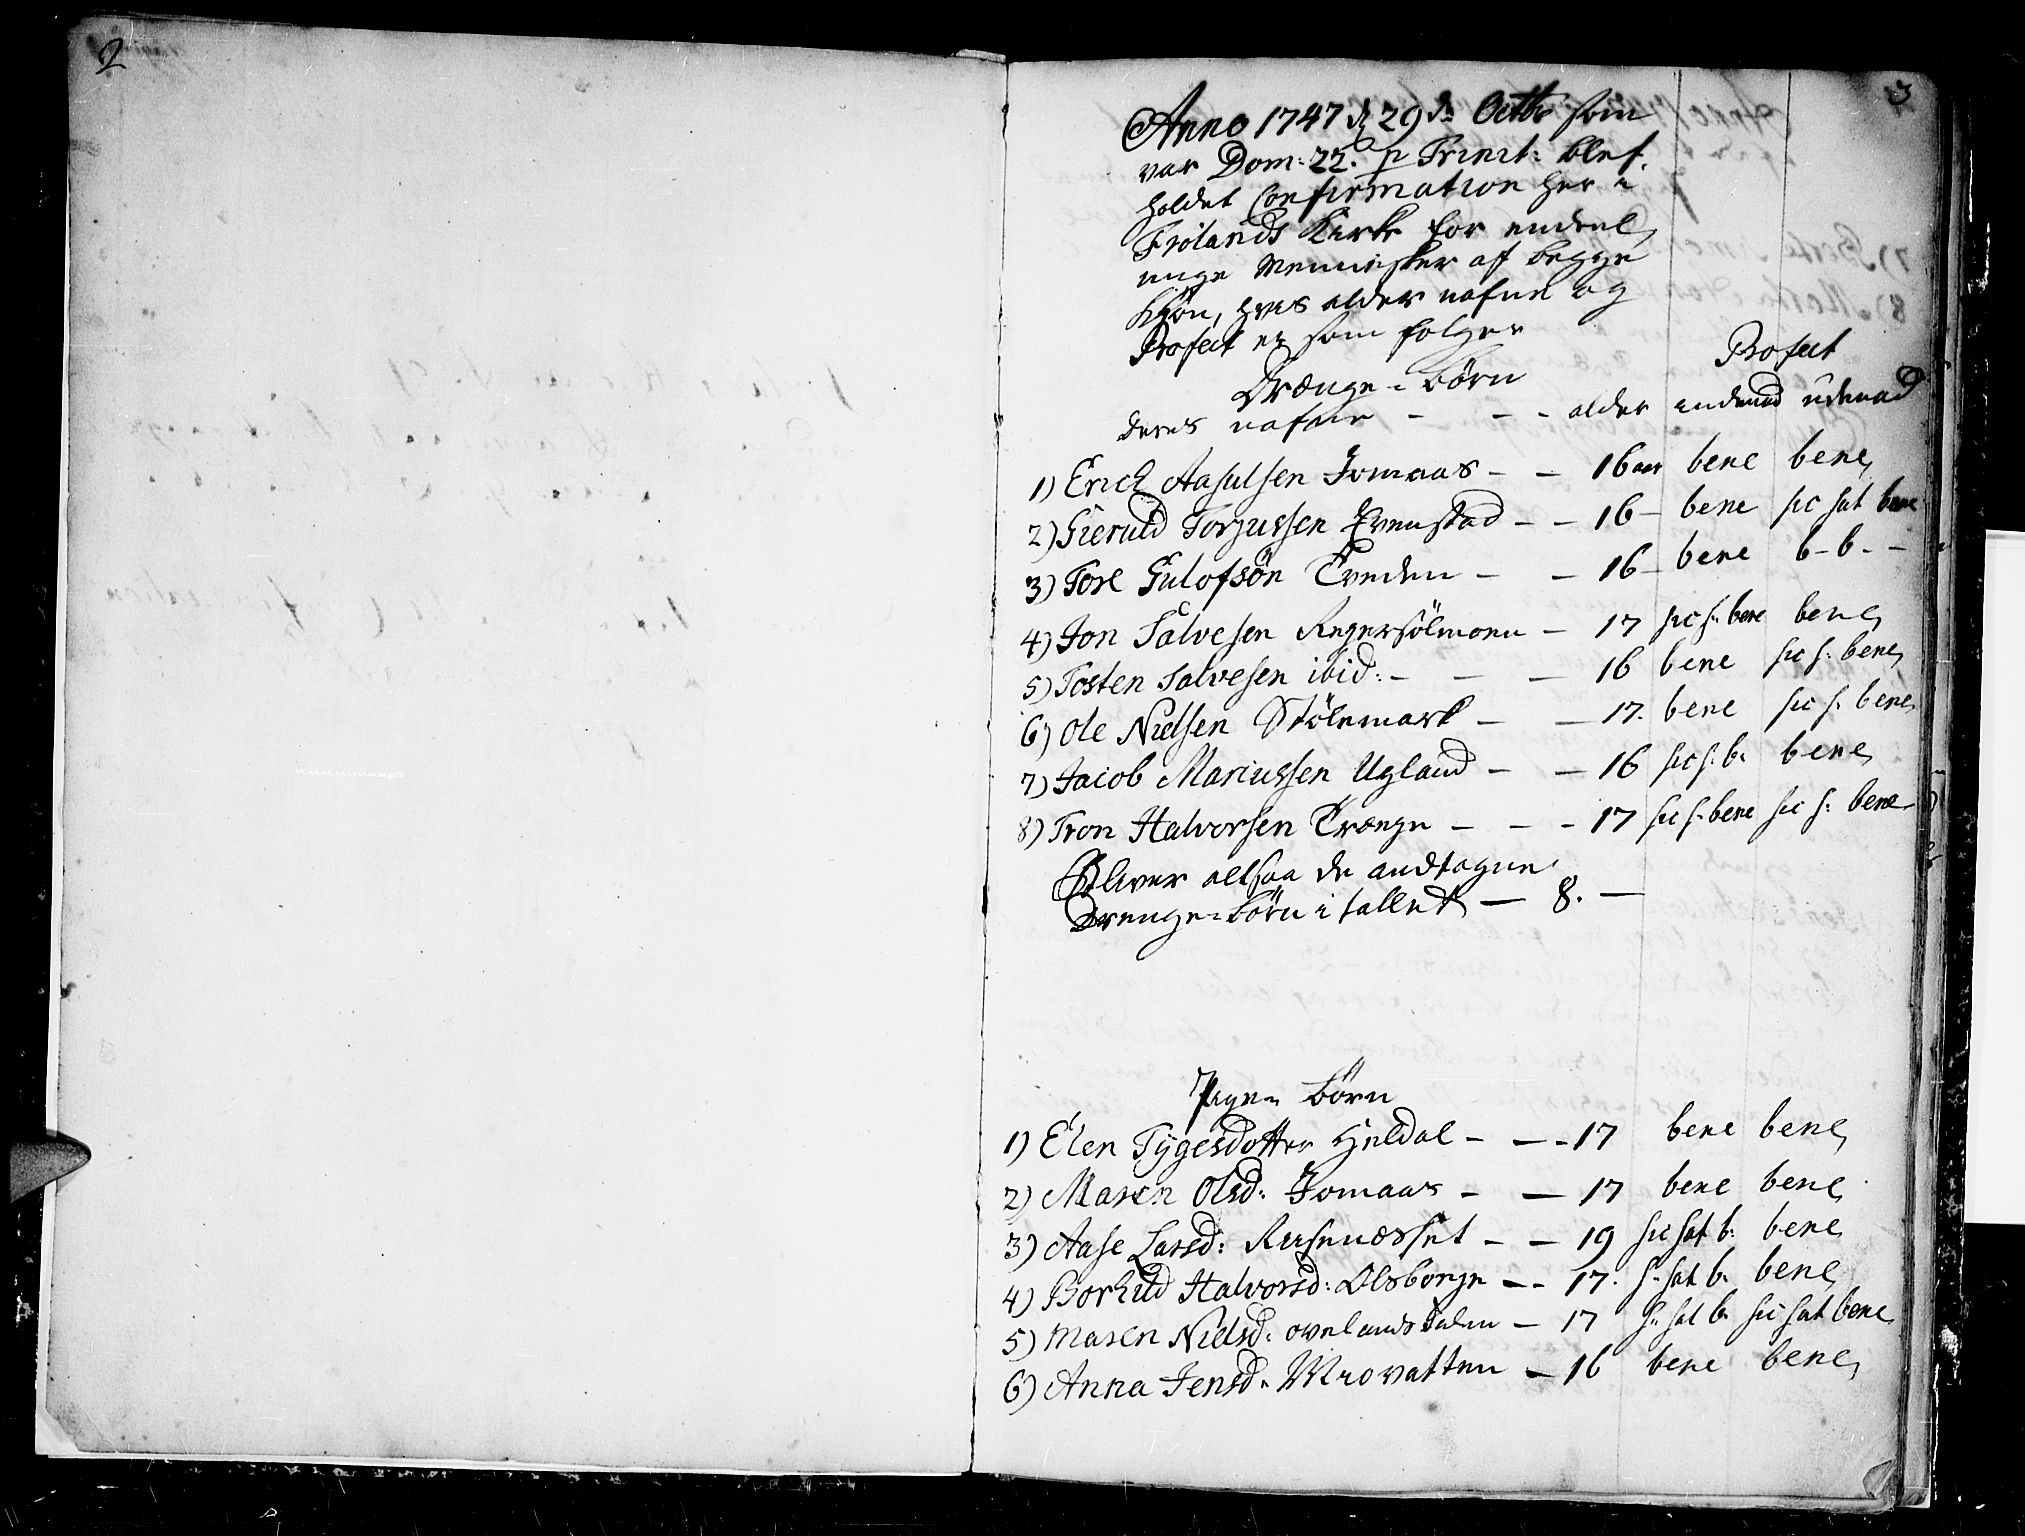 2
3
Anno 1747 d 29de Octbr som
var Dom: 22. p Trinit: blef
holdet Confirmation her i
Frølands Kirke for endeel
unge Mennisker af begge
Kiøn, hvis alder nafne og
Profect er som følger
Drænge-børn Profect
deres nafne - - - alder indenad udenad
1) Erich Aasulsen Jomaas - - 16 aar bene bene
2) Gieruld Torjussen Evenstad - - 16 - bene sic sat bene
3) Tore Gulofsøn Tveden - - 16 - bene b - b - -
4) Jon Salvesen Regersölmoen - 17 sic s: bene bene
5) Tosten Salvesen ibid: - - - 16 bene sic s: bene
6) Ole Nielsen Stölemark - - 17. bene sic s: bene
7) Jacob Mariussen Ugland - - 16 sic s: b: bene
8) Tron Halvorsen Trænge - - - 17 sic s: bene sic s: bene
Bliver altsaa de andtagne
Drenge-børn i tallet - 8. -
Pige-børn
1) Elen Tygesdotter Heldal - - - 17 bene bene
2) Maren Olsd: Jomaas - - 17 bene bene
3) Aase Larsd: Risenæsset - - 19 sic sat b: bene
4) Borhild Halvorsd: Olsborge - - 17. s: sat b: bene
5) Maren Nielsd: ovelandsdalen - 17 s: sat b: sic sat bene
6) Anna Jensd: Miovatten - 16 bene bene